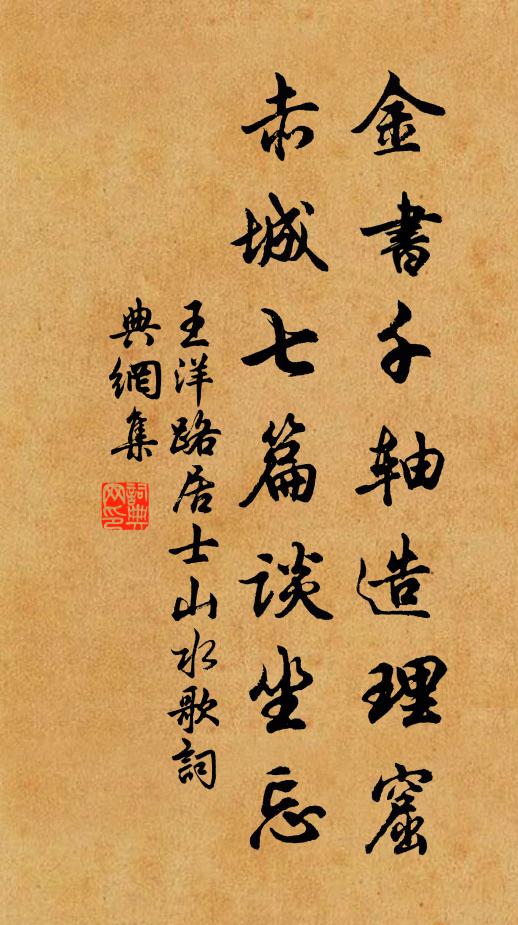 金書千軸造理窟
赤城七篇談坐忘
王洋路居士山水歌詞
典網集
詞典網印